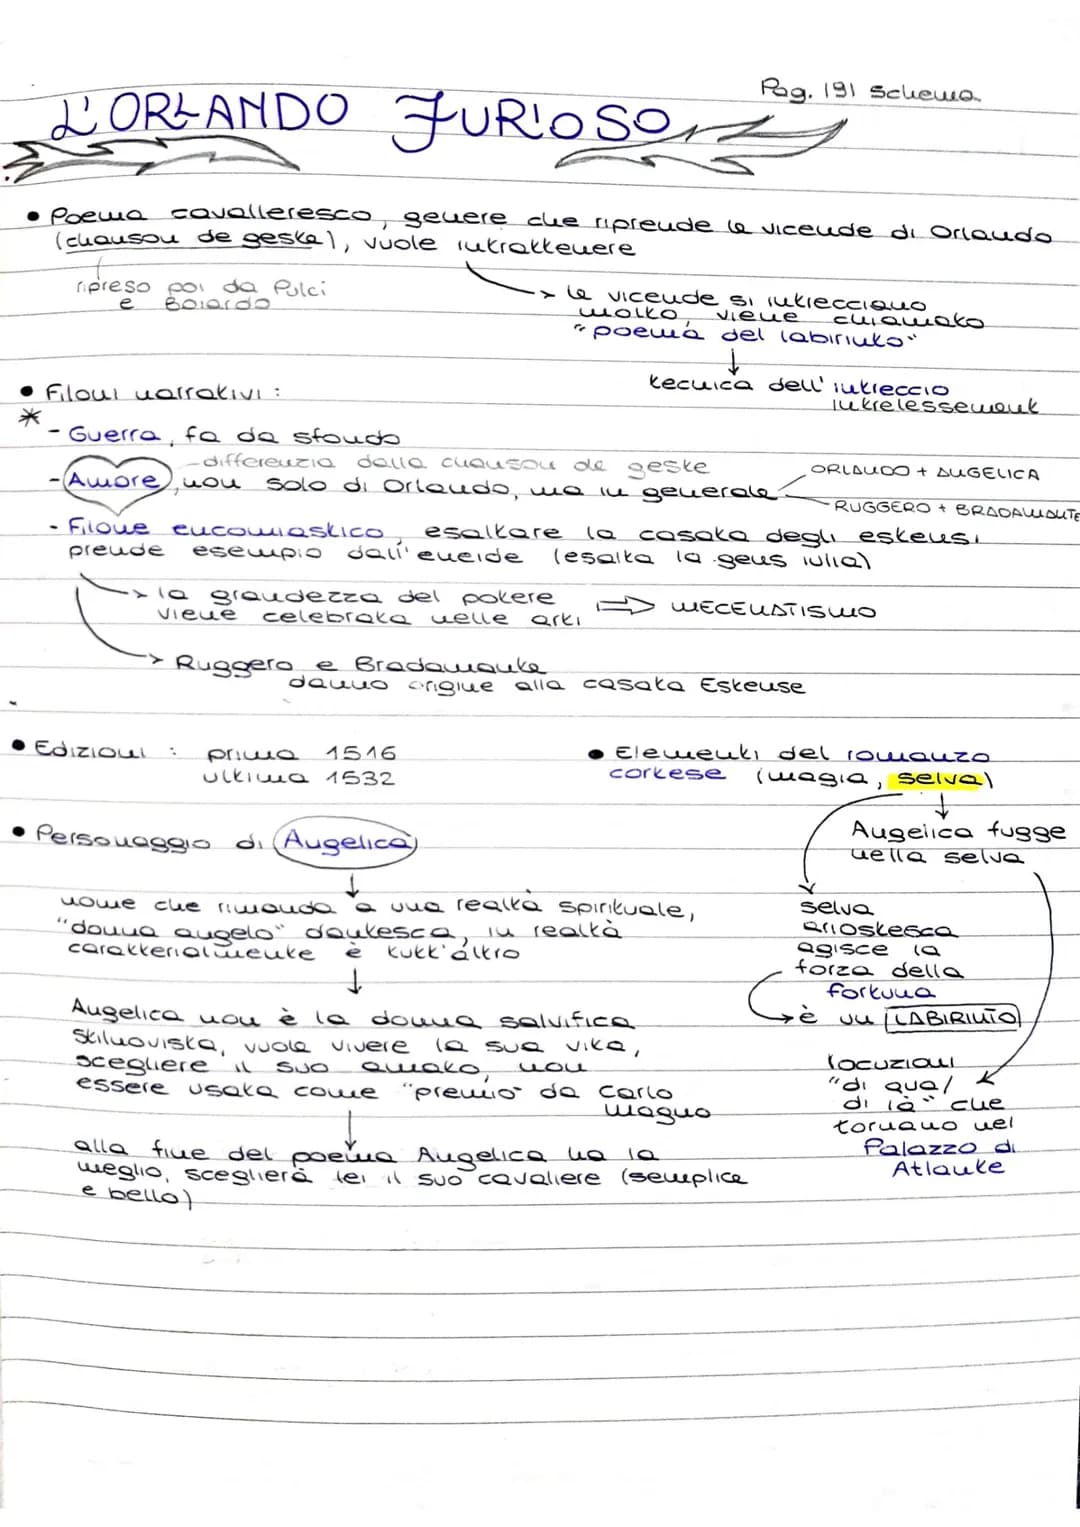 Pag. 191 schema
L'ORLANDO FURIOSO
• Poema cavalleresco, genere che riprende le vicende di Orlando
(chanson de geste), vuole intrattenere
ripreso poi da Pulci
e Boiardo
→ le vicende si intrecciano
molto, viene chiamato
"poema del labirinto"
↓
tecnica dell'intreccio
intrelessement
• Filoni narrativi:
*
- Guerra, fa da sfondo
- differenzia dalla chanson de geste
- Amore, non solo di Orlando, ma in generale
ORLANDO + ANGELICA
RUGGERO + BRADAMANTE
- Filone encomiastico, esaltare la casata degli estensi
prende esempio dall'eneide (esalta la gens iulia)
→ la grandezza del potere
viene celebrata nelle arti
⇒ MECENATISMO
→ Ruggero e Bradamante
danno origine alla casata Estense
• Edizioni: prima 1516
ultima 1532
• Elementi del romanzo
cortese (magia, selva)
↓
Angelica fugge
nella selva
selva
ariostesca
agisce la
forza della
fortuna
→ è un LABIRINTO
locuzioni
"di qua/
di là" che
tornano nel
Palazzo di
Atlante
• Personaggio di Angelica
↓
nome che rimanda a una realtà spirituale,
"donna angelo" dantesca, in realtà
caratterialmente è tutt'altro
↓
Angelica non è la donna salvifica
Stilnovista, vuole vivere la sua vita,
scegliere il suo amato, non
essere usata come "premio" da Carlo
magno
↓
alla fine del poema Angelica ha la
meglio, sceglierà lei il suo cavaliere (semplice
e bello)